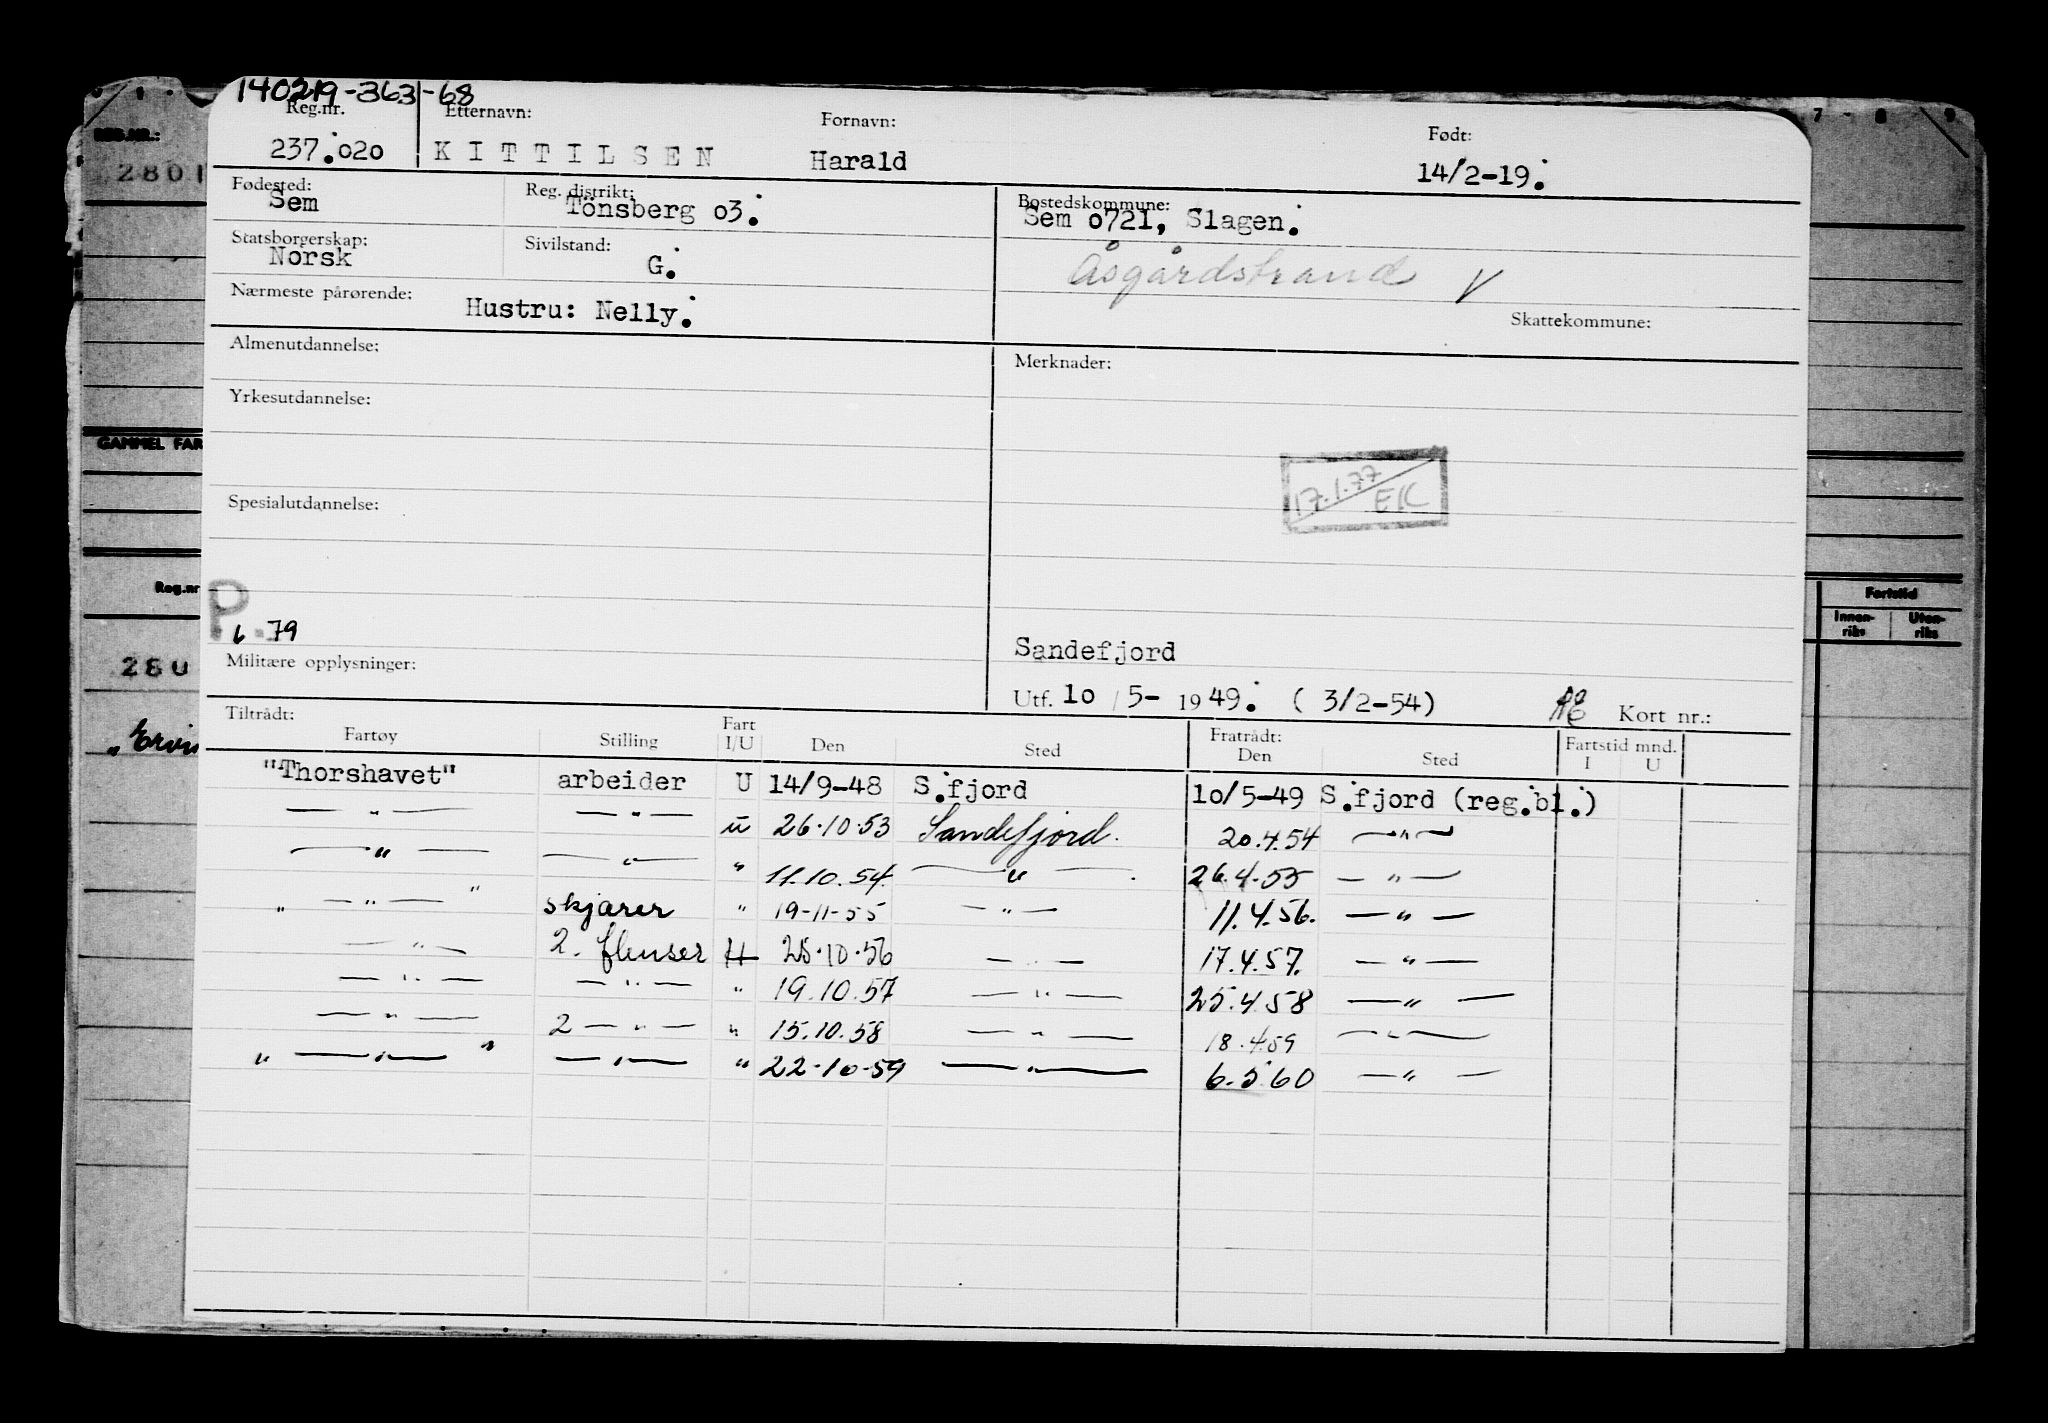 140219-363-68
Reg.nr. Etternavn: Fornavn: Født:
237.020 KITTILSEN Harald 14/2-19.
Fødested: Reg. distrikt: Bostedskommune:
Sem Tönsberg 03. Sem 0721, Slagen.
Statsborgerskap: Sivilstand:
Norsk G. Åsgårdstrand V
Nærmeste pårørende: Skattekommune:
Hustru: Nelly.
Almenutdannelse: Merknader:
Yrkesutdannelse:
17.1.77 EK
Spesialutdannelse:
P.
6 79
Sandefjord
Militære opplysninger:
Utf. 10/5- 1949. (3/2-54) Kort nr.:
Tiltrådt: Fart Fratrådt: Fartstid mnd.
Fartøy Stilling I/U Den Sted Den Sted I U
"Thorshavet" arbeider U 14/9-48 S.fjord 10/5-49 S.fjord (reg.bl.)
— " — — " — u 26.10.53 Sandefjord. 20.4.54 — " —
— " — — " — " 11.10.54. — " — . 26.4.55 — " —
" — " — " skjærer " 19-11-55 — " — 11.4.56. — " —
— " — 2. flenser 25.10.56 — " — 17.4.57. — " —
— " — — " — " 19.10.57 — " — 25.4.58 — " —
— " — 2 — " — " 15.10.58 — " — 18.4.59 — " —
" — " — " — " — " 22-10-59 — " — 6.5.60 — " —
REG.NR.:
2801
GAMMEL FAR
Reg.nr
280
7 - 8 - 9
Fartstid
Innen-riks Uten-riks